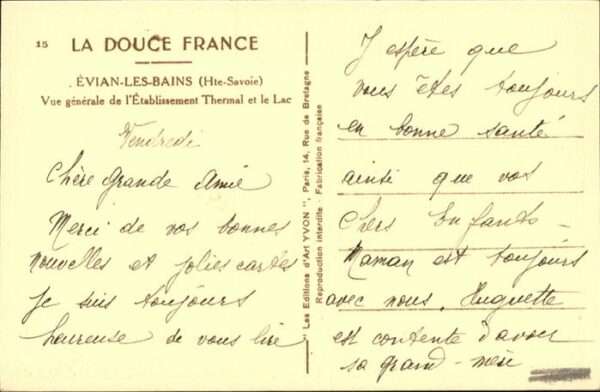 15
LA DOUCE FRANCE
ÉVIAN-LES-BAINS (Hte-Savoie)
Vue générale de l'Établissement Thermal et le Lac
Vendredi
Chère Grande Amie
Merci de vos bonnes
nouvelles et jolies cartes
Je suis toujours
heureuse de vous lire
Les Editions d'Art YVON", Paris, 14, Rue de Bretagne
Reproduction interdite - Fabrication française
J espère que
vous êtes toujours
en bonne santé
ainsi que vos
Chers Enfants -
Maman est toujours
avec nous. Huguette
est contente d'avoir
sa grand-mère